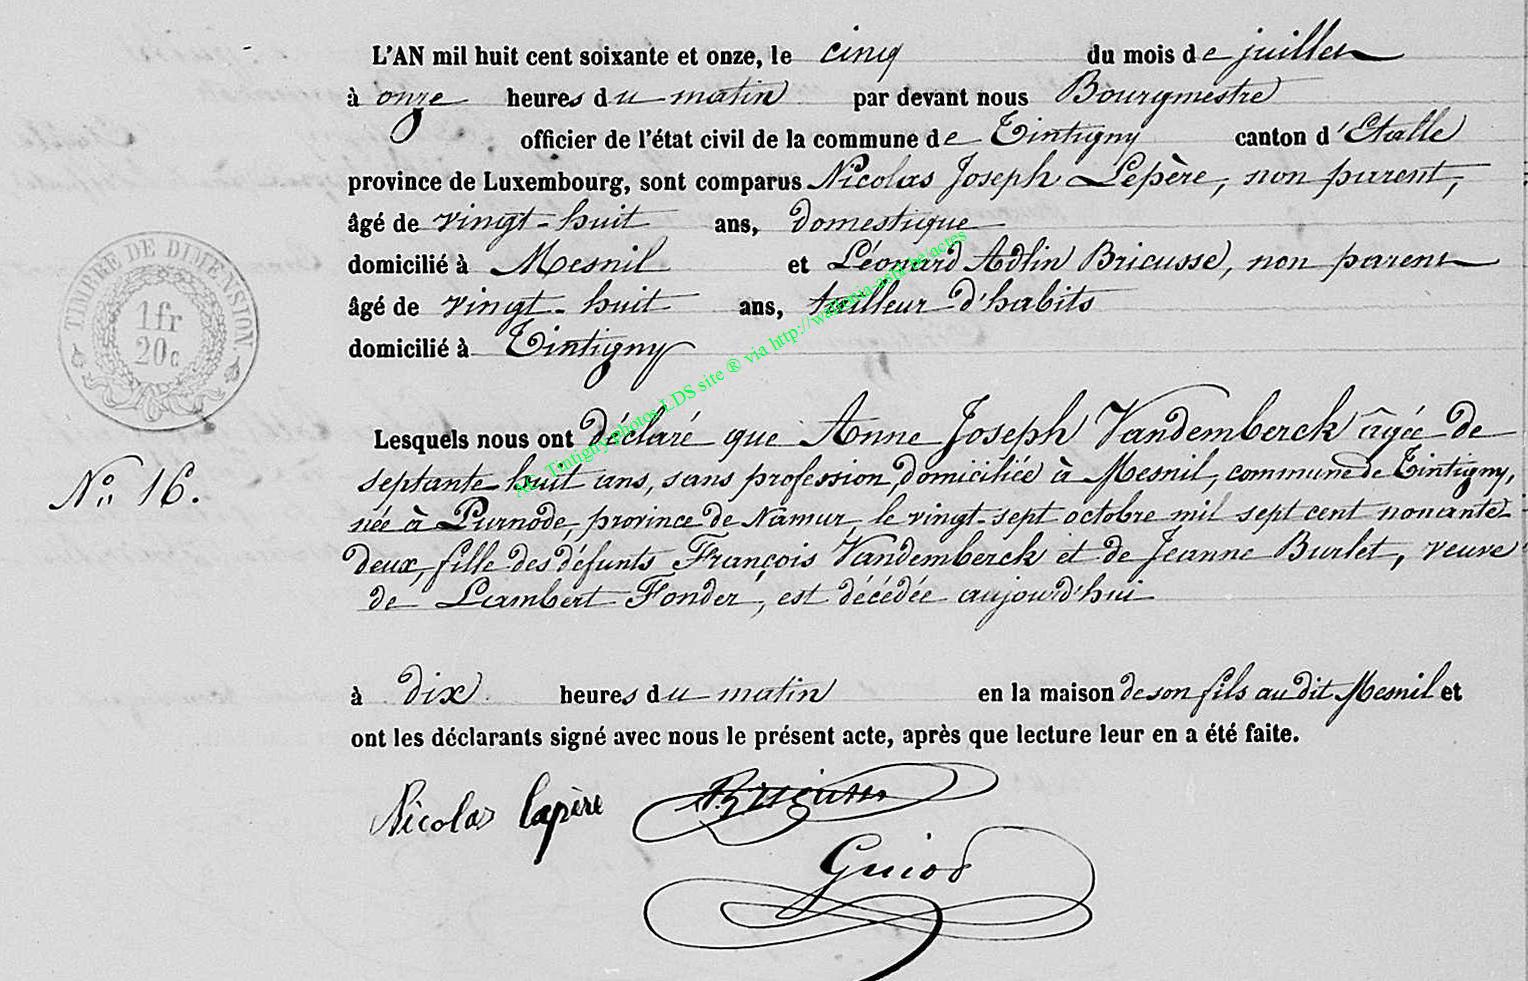 L'AN mil huit cent soixante et onze, le cinq du mois de juillet
à onze heures du matin par devant nous Bourgmestre
officier de l'état civil de la commune de Tintigny canton d'Etalle
province de Luxembourg, sont comparus Nicolas Joseph Lepère, non parent,
âgé de vingt-huit ans, domestique
domicilié à Mesnil et Léonard Adlin Bricusse, non parent
âgé de vingt-huit ans, tailleur d'habits
domicilié à Tintigny
TIMBRE DE DIMENSION
1 fr
20 c
Lesquels nous ont déclaré que Anne Joseph Vandemberck âgée de
septante-huit ans, sans profession, domiciliée à Mesnil, commune de Tintigny,
née à Purnode, province de Namur, le vingt-sept octobre mil sept cent nonante
deux, fille des défunts François Vandemberck et de Jeanne Burlet, veuve
de Lambert Fonder, est décédée aujourd'hui
No 16.
à dix heures du matin en la maison de son fils au dit Mesnil et
ont les déclarants signé avec nous le présent acte, après que lecture leur en a été faite.
Nicolas Lapère Bricusse
Guiot
Tintigny photos LDS site ® via http://wallonia-asbl.be/actes